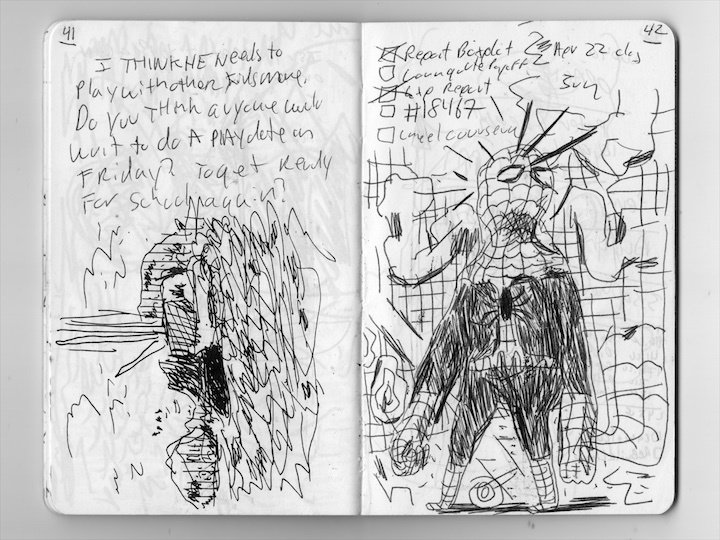 41
I THINK HE Needs to
Play with other kids more.
Do you Think anyone would
want to do A PlAYdate on
Friday? To get Ready
For School again?
42
Report
Apr 22
Report
Sun
#18467